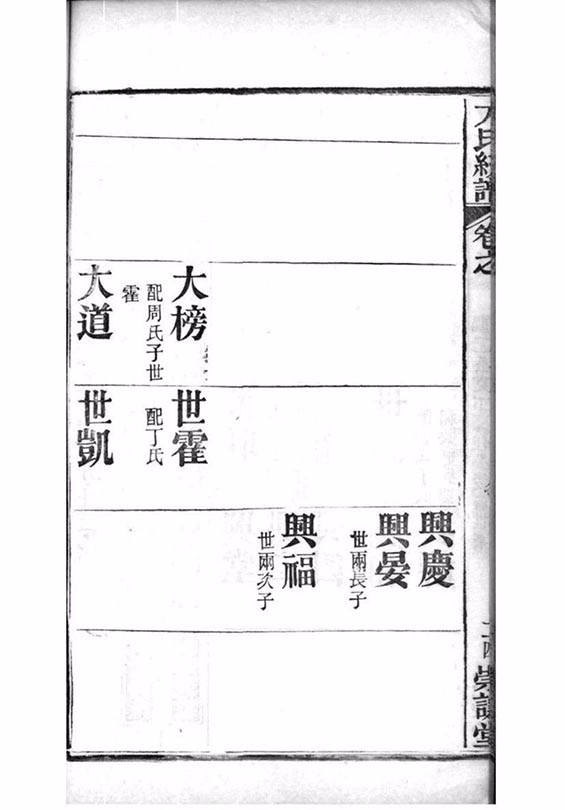 氏
譜
卷之
崇
堂
興慶
興晏
世兩長子
興福
世兩次子
大榜
配周氏子世
霍
世霍
配丁氏
大道
世凱